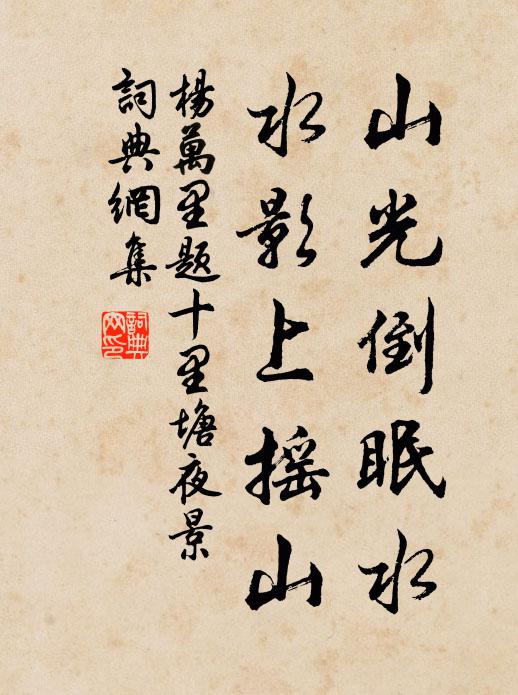 山光倒眠水
水影上摇山
楊萬里题十里塘夜景
詞典網集
詞典网印